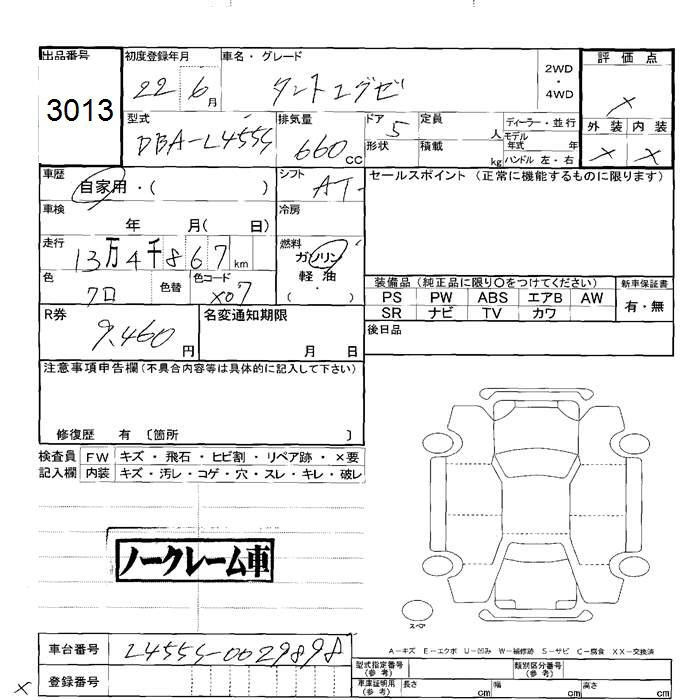 出品番号 初度登録年月 車名・グレード 評価点
3013 22 6月 タントエグゼ 2WD ・ 4WD ×
型式 排気量 ドア 定員 ディーラー・並行 外装 内装
DBA-L455S 660cc 5 人 モデル年式 年 × ×
形状 積載 kg ハンドル 左・右
車歴 自家用・( ) シフト AT セールスポイント (正常に機能するものに限ります)
車検 年 月( 日) 冷房
走行 13万4千867km 燃料 ガソリン
軽・油
( ・ )
色 クロ 色替 色コード X07
装備品 (純正品に限り〇をつけてください) 新車保証書
PS PW ABS エアB AW 有・無
SR ナビ TV カワ
R券 9.460円 名変通知期限 月 日 後日品
注意事項申告欄(不具合内容等は具体的に記入して下さい)
修復歴 有 〔箇所 〕
検査員 FW キズ・飛石・ヒビ割・リペア跡・×要
記入欄 内装 キズ・汚レ・コゲ・穴・スレ・キレ・破レ
ノークレーム車
スペア
A-キズ E-エクボ U-凹み W-補修跡 S-サビ C-腐食 XX-交換済
車台番号 L455S-0029898
型式指定番号(参考) 類別区分番号(参考)
× 登録番号
車庫証明用(参考) 長さ cm 幅 cm 高さ cm